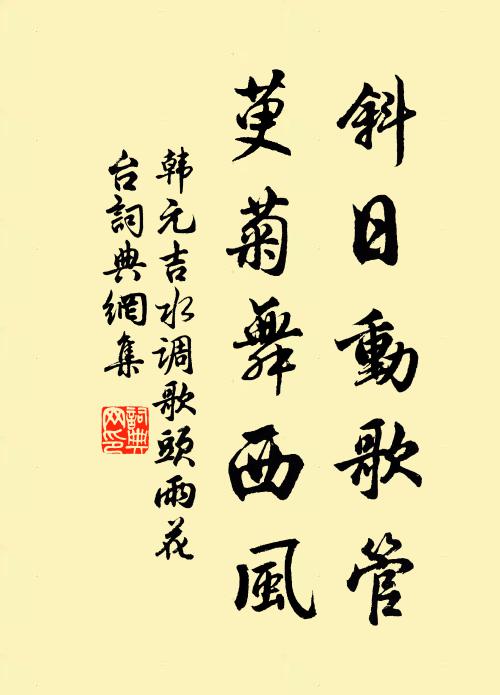 斜日動歌管
萸菊舞西風
韩元吉水调歌頭雨花
台詞典網集
詞典网印